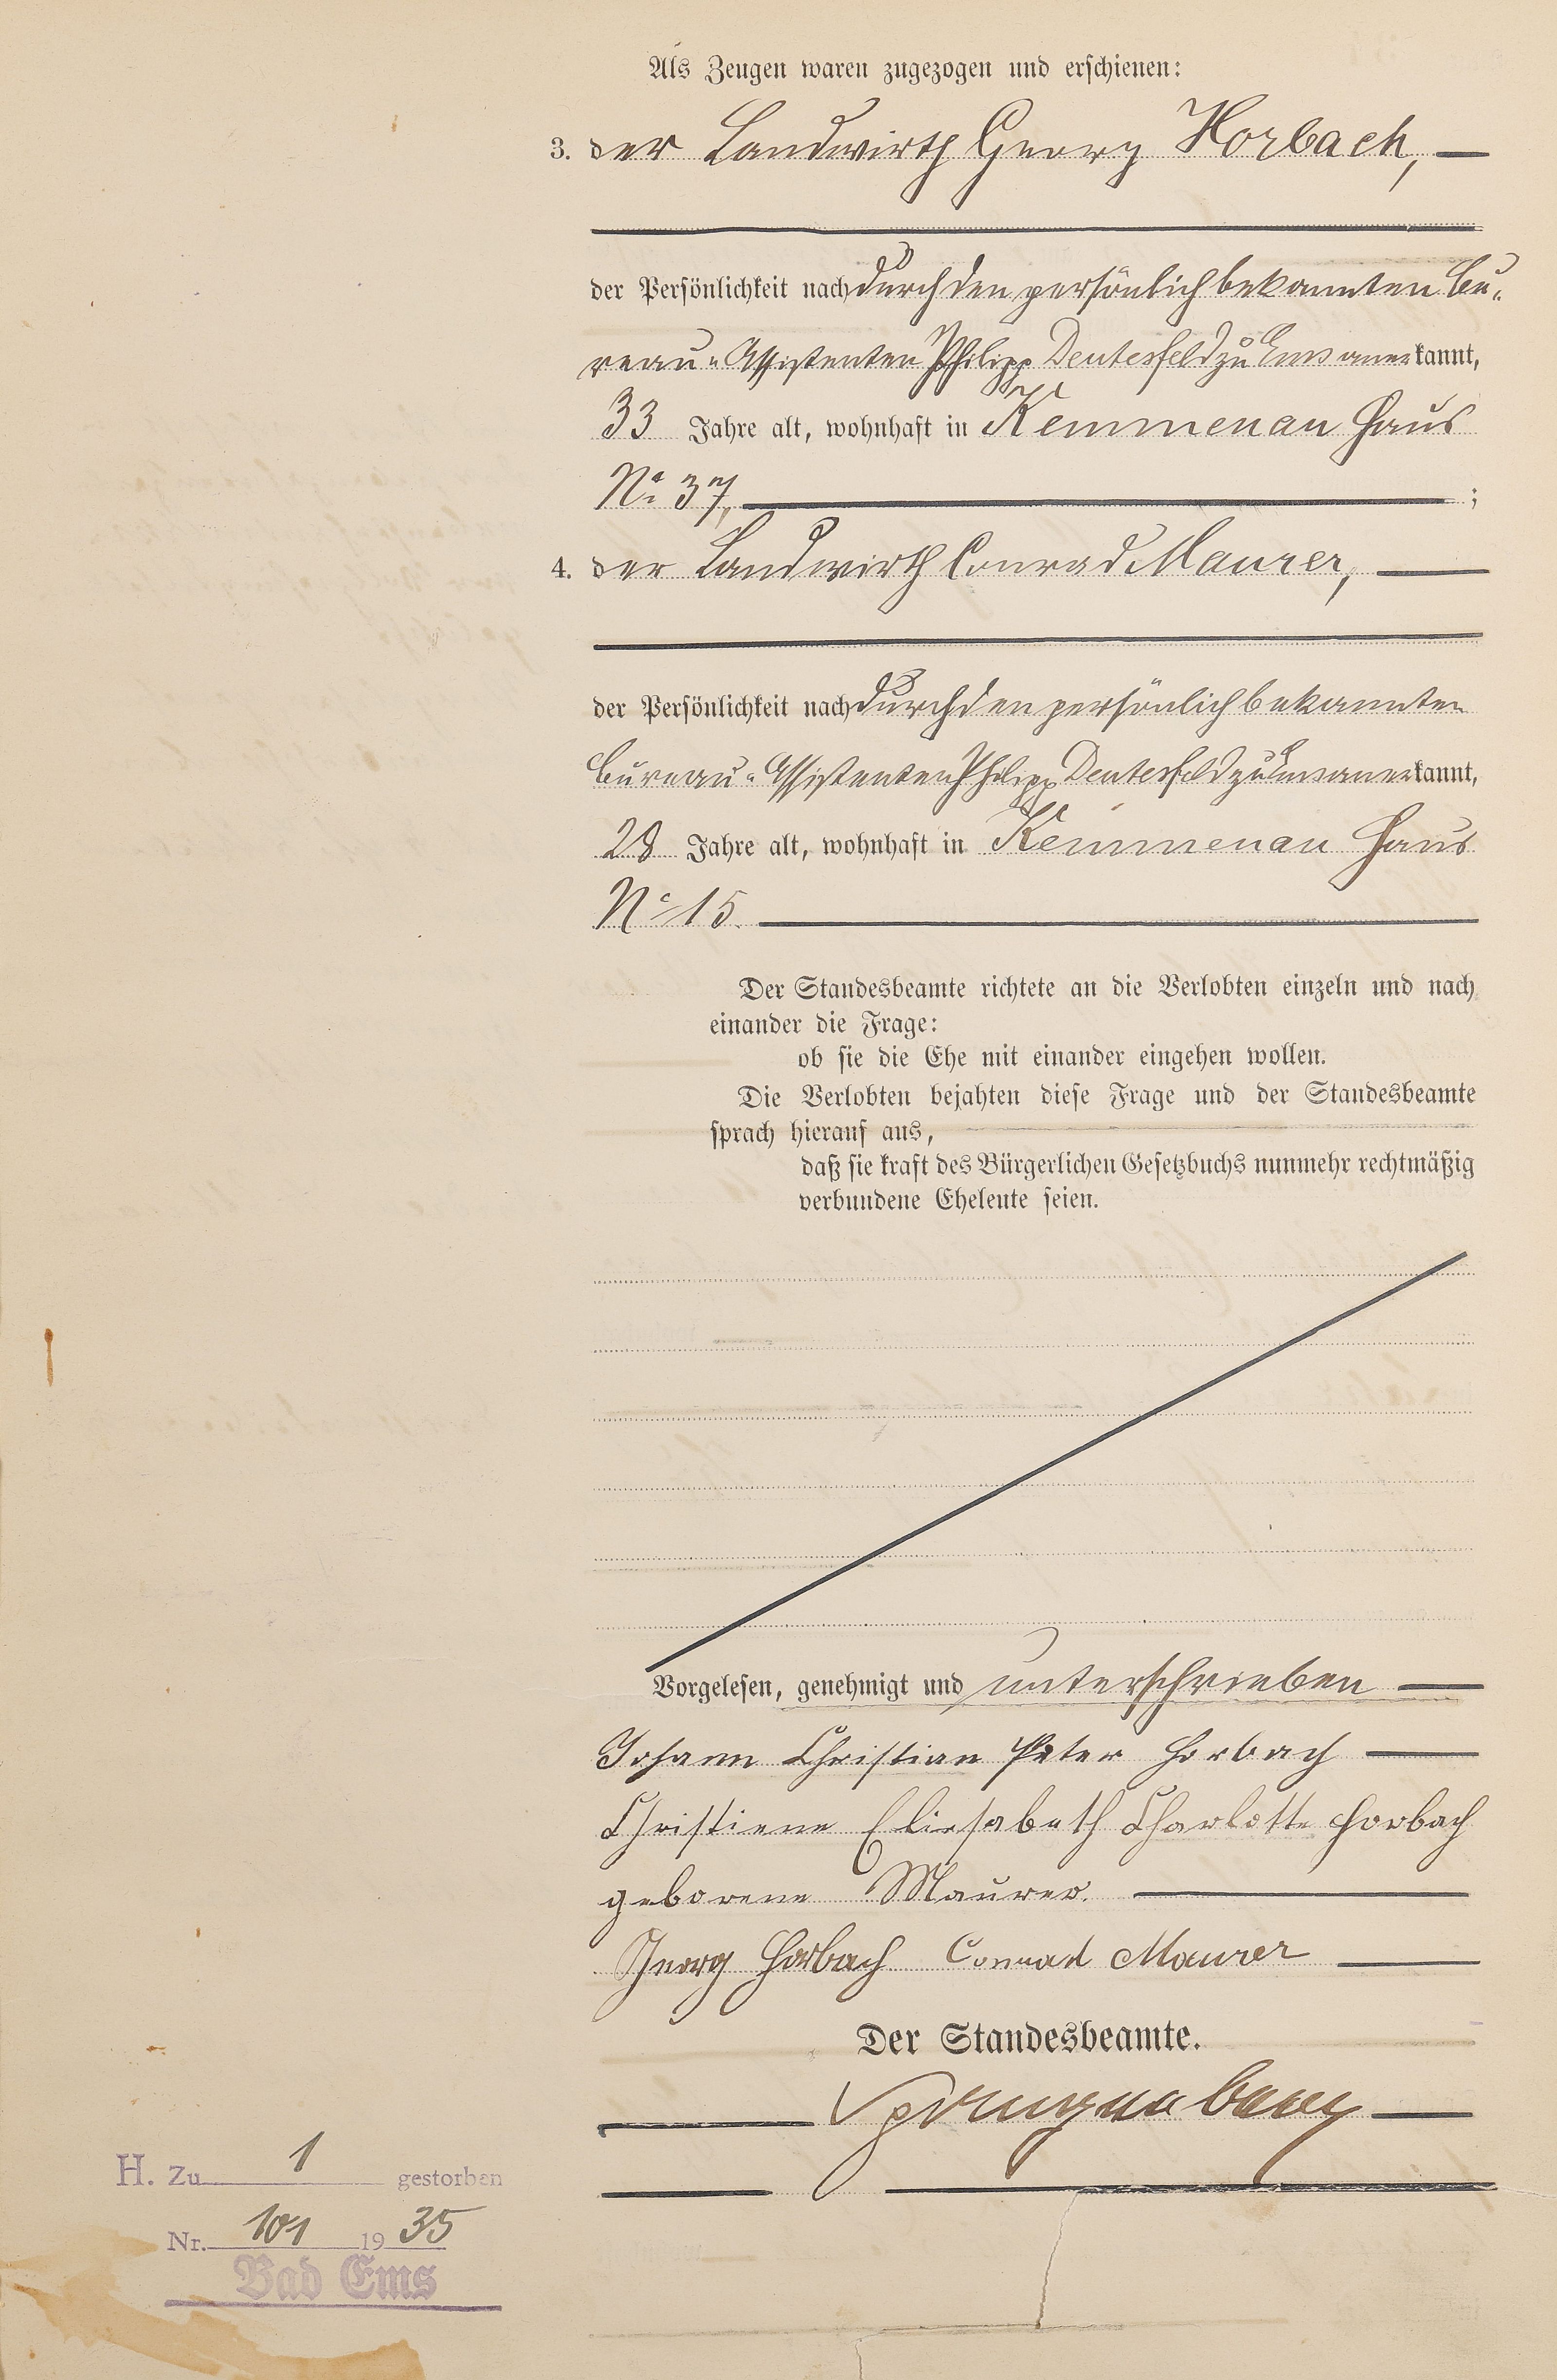 Als Zeugen waren zugezogen und erschienen:
3. der Landwirth Georg Horbach, —
der Persönlichkeit nach durch den persönlich bekannten Bu-
reau-Assistenten Philipp Deutesfeld zu Ems anerkannt,
33 Jahre alt, wohnhaft in Kemmenau Haus
No. 37, ;
4. der Landwirth Conrad Maurer, —
der Persönlichkeit nach durch den persönlich bekannten
Bureau-Assistenten Philipp Deutesfeld zu Ems anerkannt,
28 Jahre alt, wohnhaft in Kemmenau Haus
No 15. —
Der Standesbeamte richtete an die Verlobten einzeln und nach
einander die Frage:
ob sie die Ehe mit einander eingehen wollen.
Die Verlobten bejahten diese Frage und der Standesbeamte
sprach hierauf aus,
daß sie kraft des Bürgerlichen Gesetzbuchs nunmehr rechtmäßig
verbundene Eheleute seien.
Vorgelesen, genehmigt und unterschrieben —
Johann Christian Peter Horbach —
Christiene Eliesabeth Charlotte Horbach
geborene Maurer. —
Georg Horbach Conrad Maurer —
Der Standesbeamte.
H. Zu 1 gestorben
Nr. 101 1935
Bad Ems